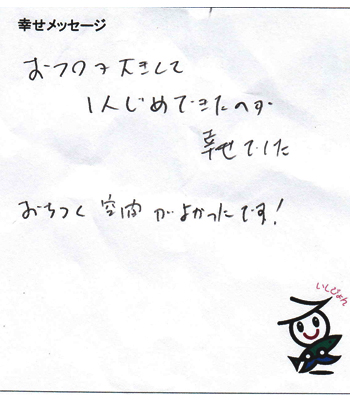 幸せメッセージ
おフロ大きくて
1人じめできたのが
幸せでした
おちつく空間がよかったです!
いしじょん